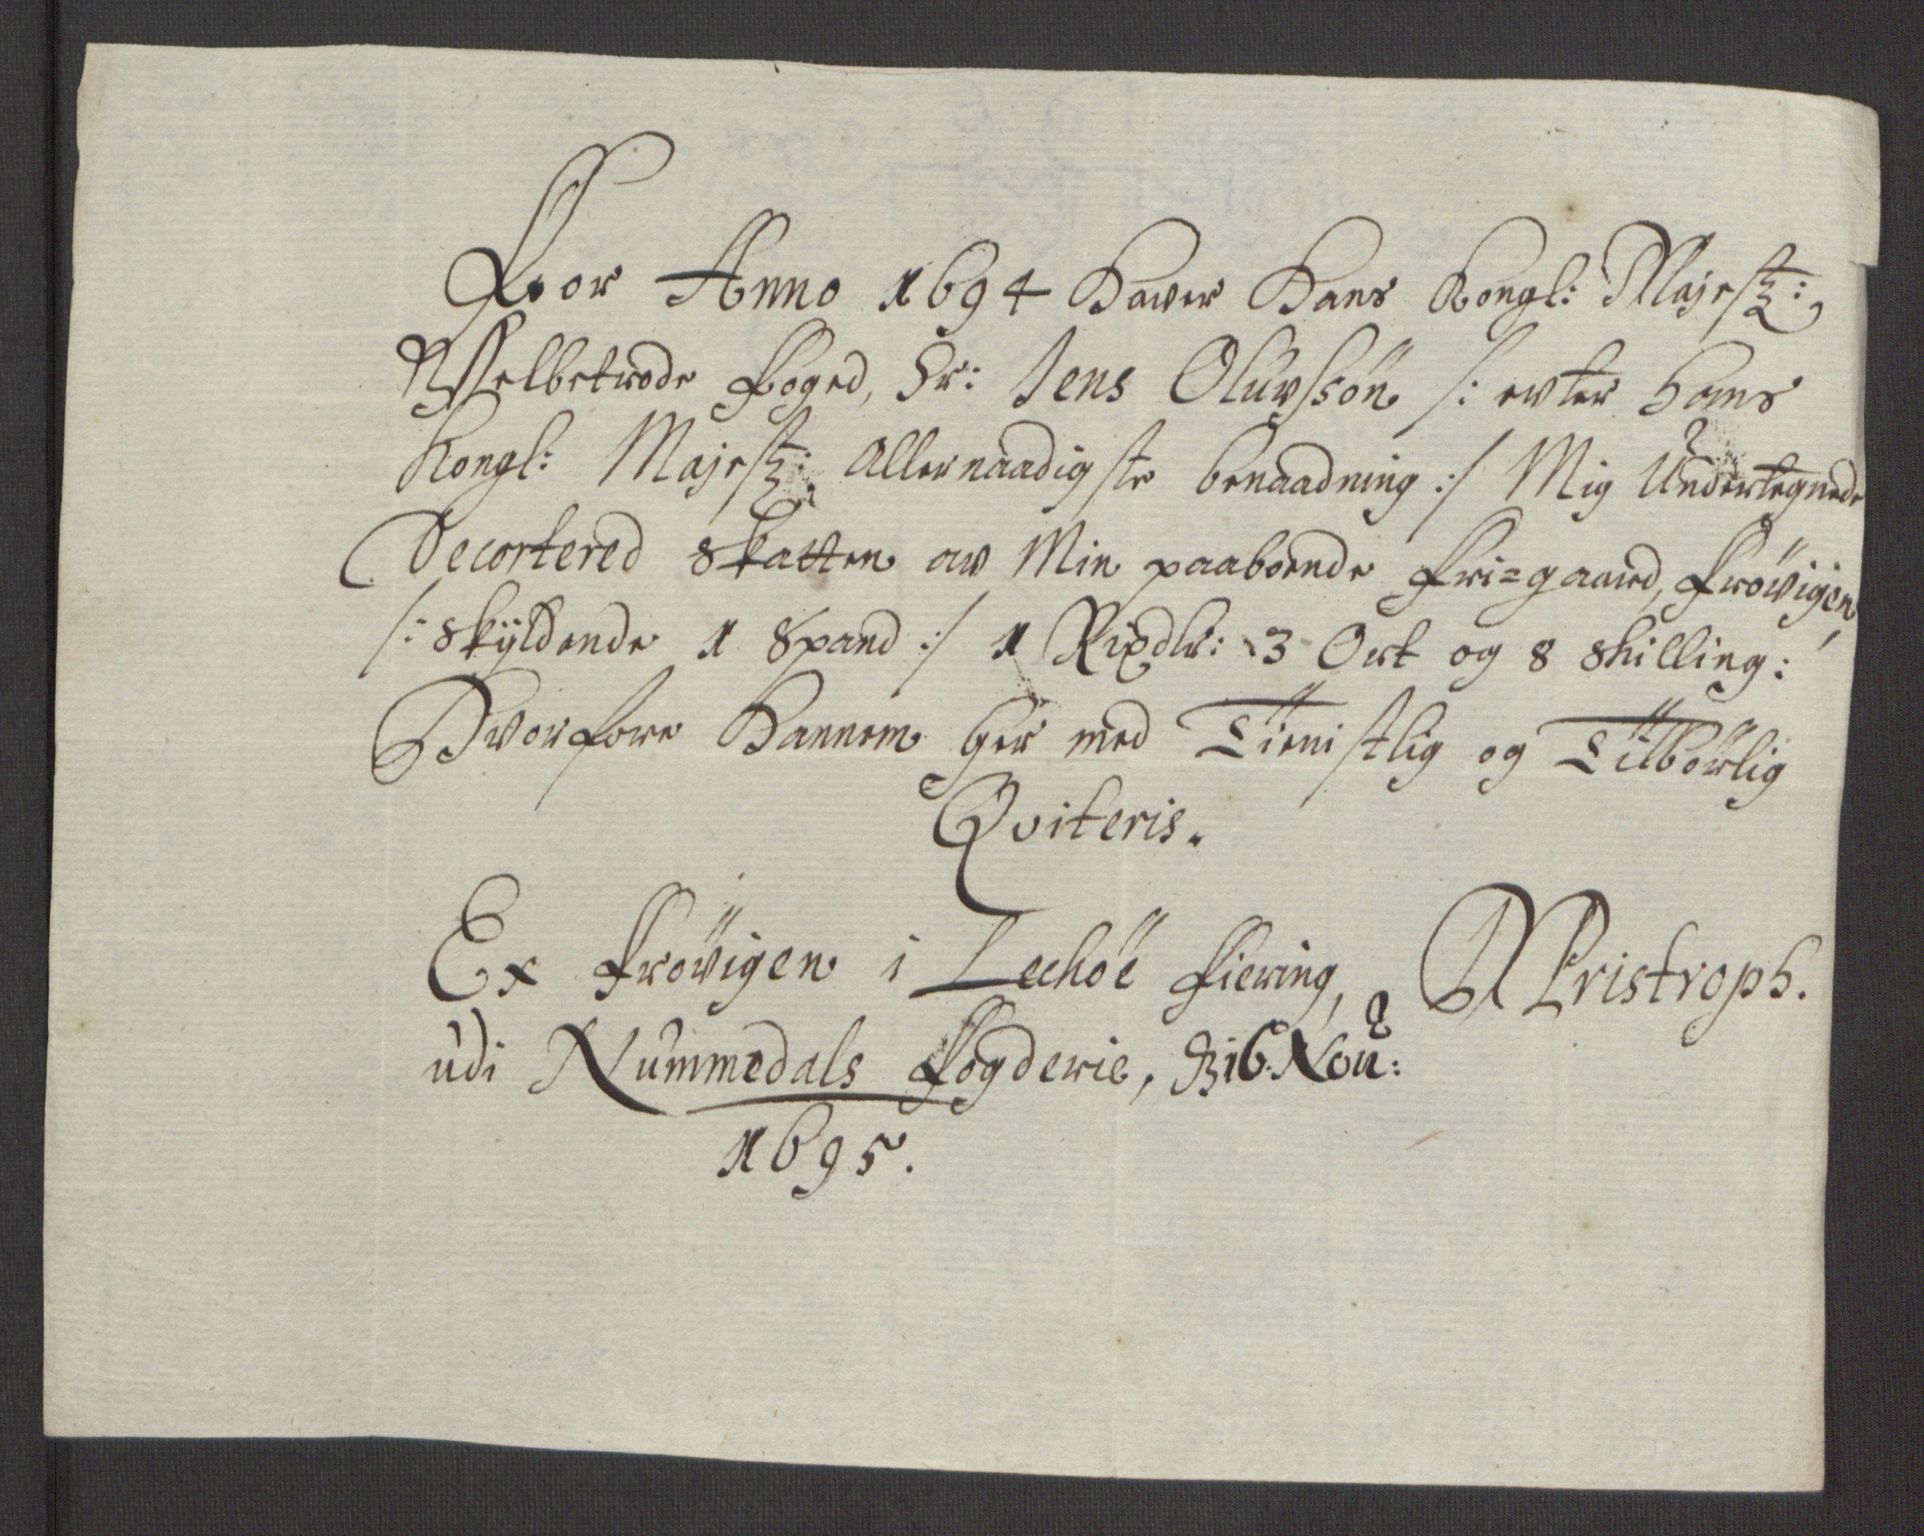 Foor Anno 1694 Haver Hans Kongl: Majestz:
Welbetrode Foged, Sr: Jens Olüvssön /: evter Hans
Kongl: Majestz: Allernaadigste benaadning :/ Mig Undertegnede
Decortered Skatten av Min paaboende Fri=gaard, Frövigen,
/: Skÿldende 1 Spand :/ 1 Rixdlr: 3 Ort og 8 skilling:
Hvorfore Hannem Her med Tienistlig og Tilbörlig
Qviteris.
Ex Frövigen i Lechöe Fiering,
udi Nummedals Fogderie, 16 Nou:
1695.
Pristroph.